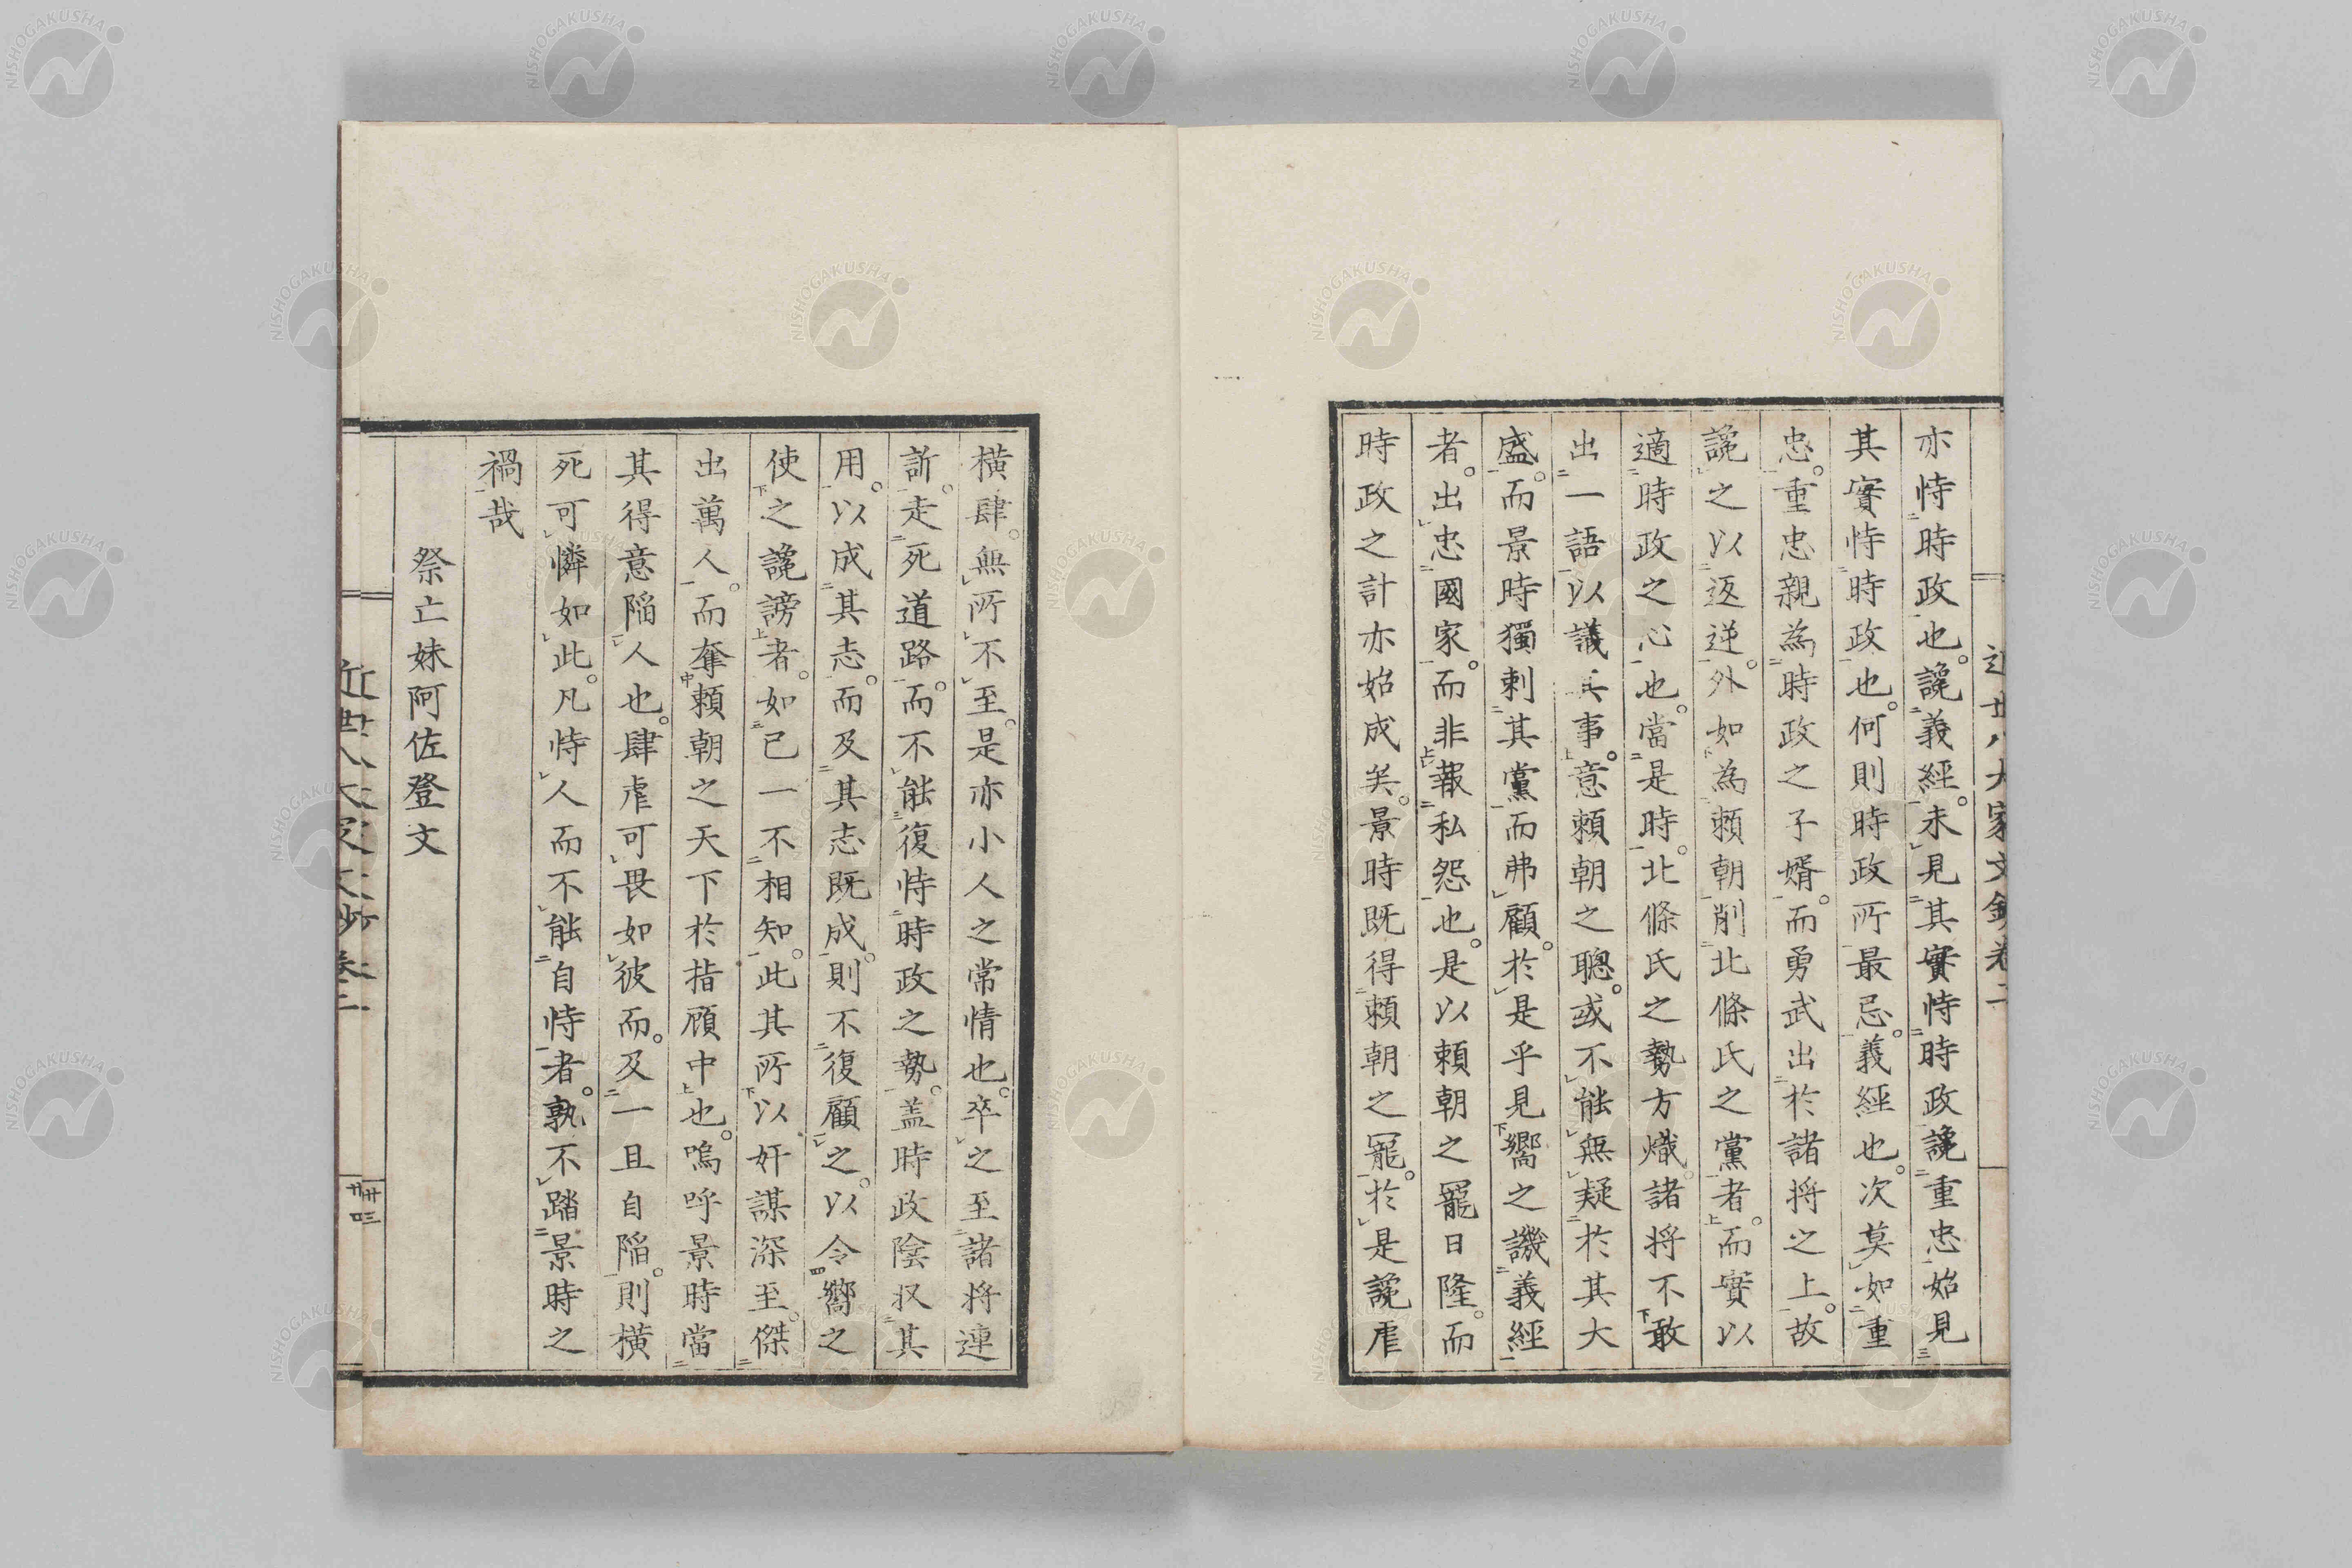 亦恃時政也。讒義經。未見其實恃時政讒重忠始見
其實恃時政也。何則時政所最忌。義經也。次莫如重
忠。重忠親為時政之子婿。而勇武出於諸将之上。故
讒之以返逆。外如為頼朝削北條氏之黨者。而實以
適時政之心也。當是時。北條氏之勢方熾。諸将不敢
出一語以議兵事。意頼朝之聰。或不能無疑於其大
盛。而景時獨刺其黨而弗顧。於是乎見嚮之譏義經
者。出忠國家。而非報私怨也。是以頼朝之寵日隆。而
時政之計亦始成矣。景時既得頼朝之寵。於是讒虐
横肆。無所不至。是亦小人之常情也。卒之至諸将連
訴。走死道路。而不能復恃時政之勢。盖時政陰収其
用。以成其志。而及其志既成。則不復顧之。以令嚮之
使之讒謗者。如已一不相知。此其所以奸謀深至。傑
出萬人。而奪頼朝之天下於指顧中也。嗚呼景時當
其得意陥人也。肆虐可畏如彼而。及一旦自陥。則横
死可憐如此。凡恃人而不能自恃者。孰不踏景時之
禍哉
祭亡妹阿佐登文
近世八大家文鈔 卷二
NISHOGAKUSHA